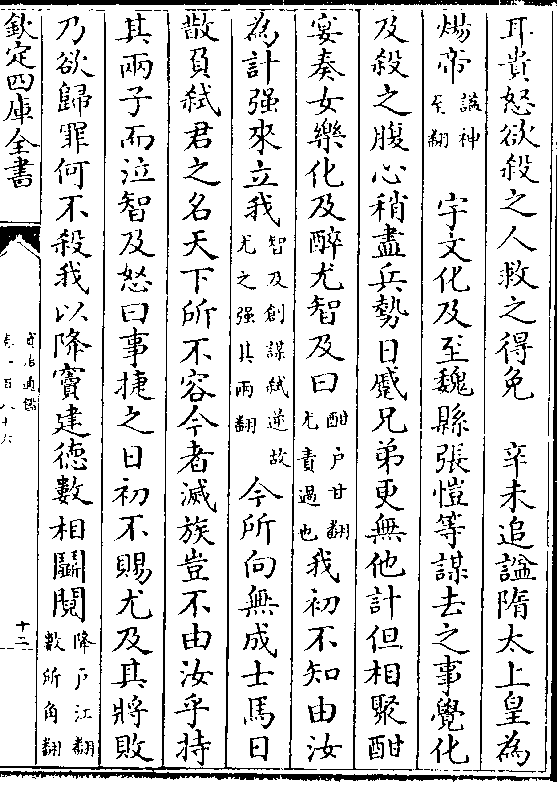 耳貴怒欲殺之人救之得免　辛未追諡隋太上皇為
煬帝諡神至翻　宇文化及至魏縣張愷等謀去之事覺化
及殺之腹心稍盡兵勢日蹙兄弟更無他計但相聚酣
宴奏女樂化及醉尤智及曰酣户甘翻尤責過也我初不知由汝
為計强來立我智及創謀弑逆故尤之强其兩翻今所向無成士馬日
散負弑君之名天下所不容今者滅族豈不由汝乎持
其兩子而泣智及怒曰事捷之日初不賜尤及其將敗
乃欲歸罪何不殺我以降竇建德數相鬭鬩降户江翻數所角翻
欽定四庫全書
資治通鑑
卷一百八十六
十二